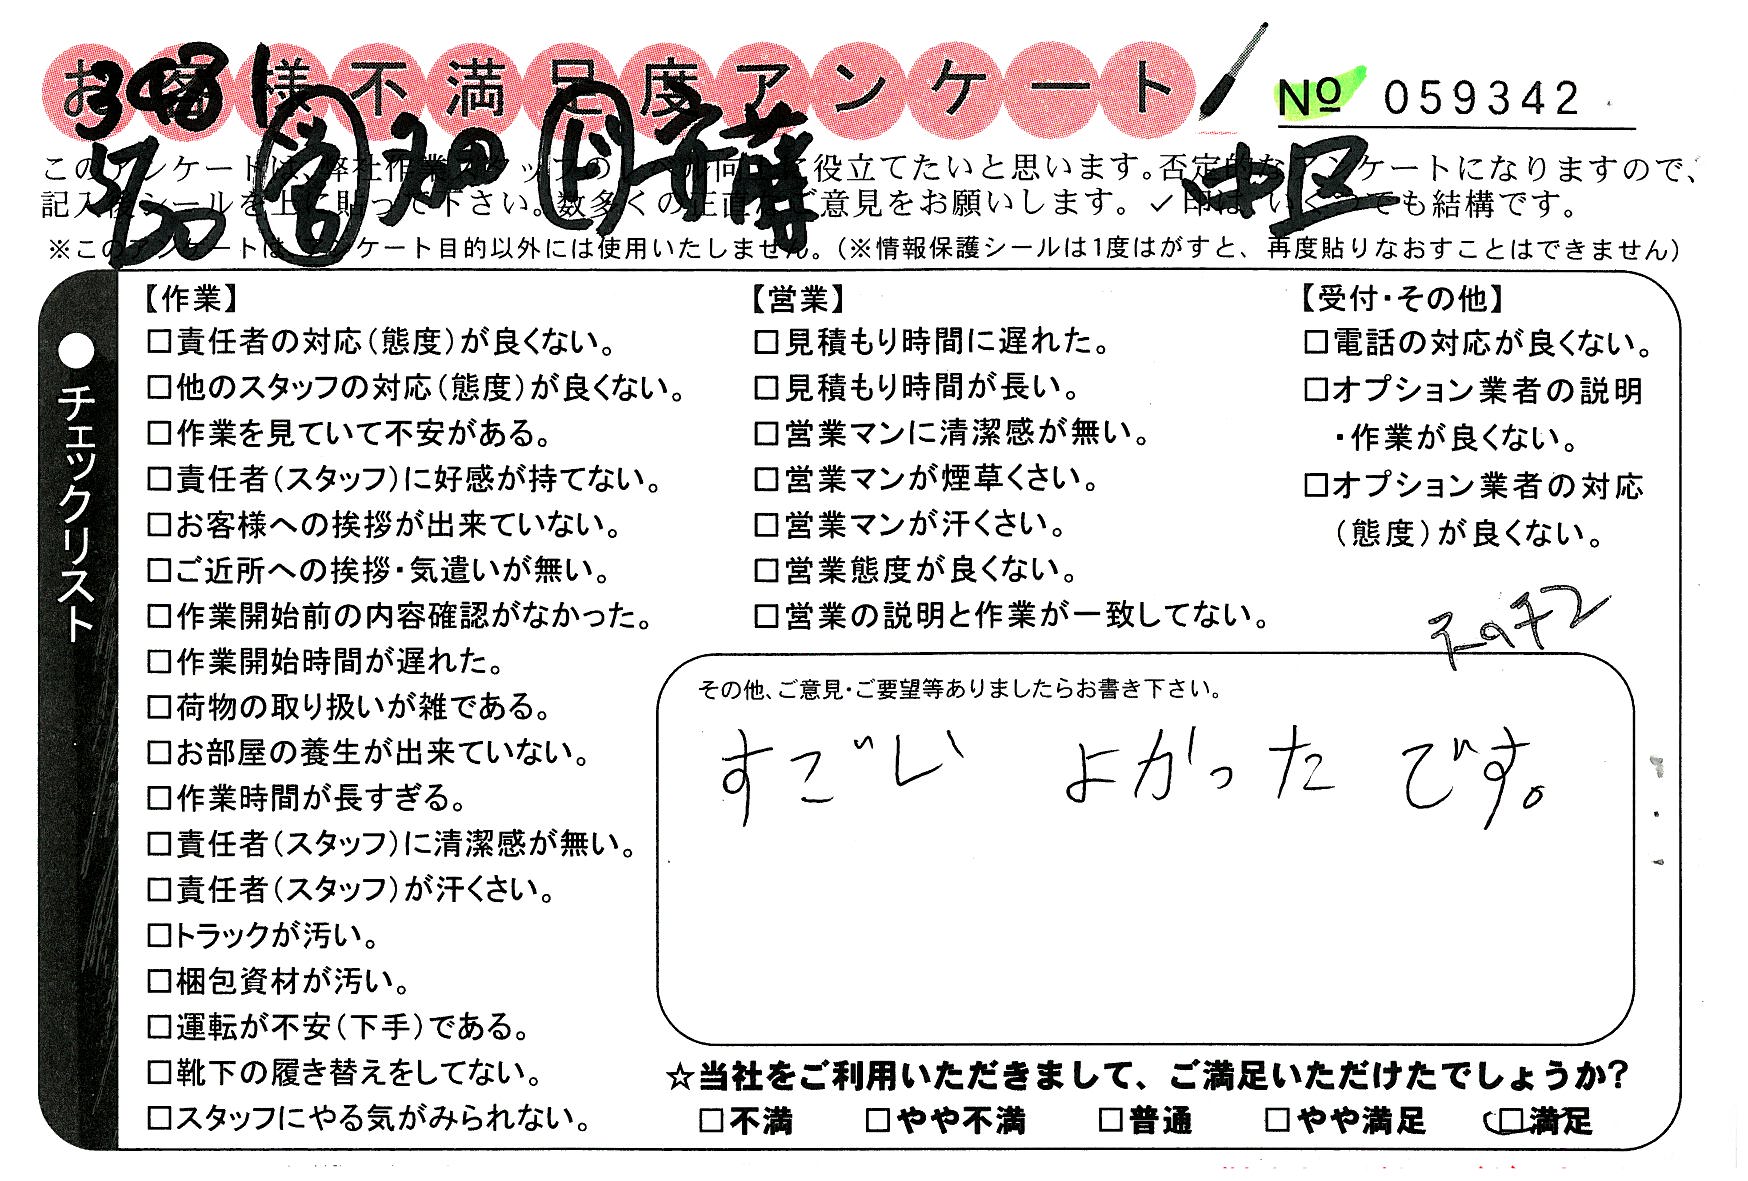 お客様不満足度アンケート
No 059342
5/20 営 畑 ド 斉藤 中区
このアンケートは、弊社作業スタッフの 向 に役立てたいと思います。否定的なアンケートになりますので、
記入後シールを上に貼って下さい。数多くの正直なご意見をお願いします。✓印は、いくつでも結構です。
※このアンケートは、アンケート目的以外には使用いたしません。(※情報保護シールは1度はがすと、再度貼りなおすことはできません)
●チェックリスト
【作業】
□責任者の対応(態度)が良くない。
□他のスタッフの対応(態度)が良くない。
□作業を見ていて不安がある。
□責任者(スタッフ)に好感が持てない。
□お客様への挨拶が出来ていない。
□ご近所への挨拶・気遣いが無い。
□作業開始前の内容確認がなかった。
□作業開始時間が遅れた。
□荷物の取り扱いが雑である。
□お部屋の養生が出来ていない。
□作業時間が長すぎる。
□責任者(スタッフ)に清潔感が無い。
□責任者(スタッフ)が汗くさい。
□トラックが汚い。
□梱包資材が汚い。
□運転が不安(下手)である。
□靴下の履き替えをしてない。
□スタッフにやる気がみられない。
【営業】
□見積もり時間に遅れた。
□見積もり時間が長い。
□営業マンに清潔感が無い。
□営業マンが煙草くさい。
□営業マンが汗くさい。
□営業態度が良くない。
□営業の説明と作業が一致してない。
【受付・その他】
□電話の対応が良くない。
□オプション業者の説明
・作業が良くない。
□オプション業者の対応
(態度)が良くない。
その他、ご意見・ご要望等ありましたらお書き下さい。
すごい よかった です。
☆当社をご利用いただきまして、ご満足いただけたでしょうか?
□不満 □やや不満 □普通 □やや満足 □満足